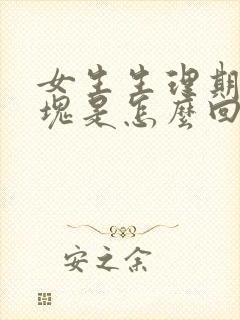 女生生理期
塊是怎麼回
安之余